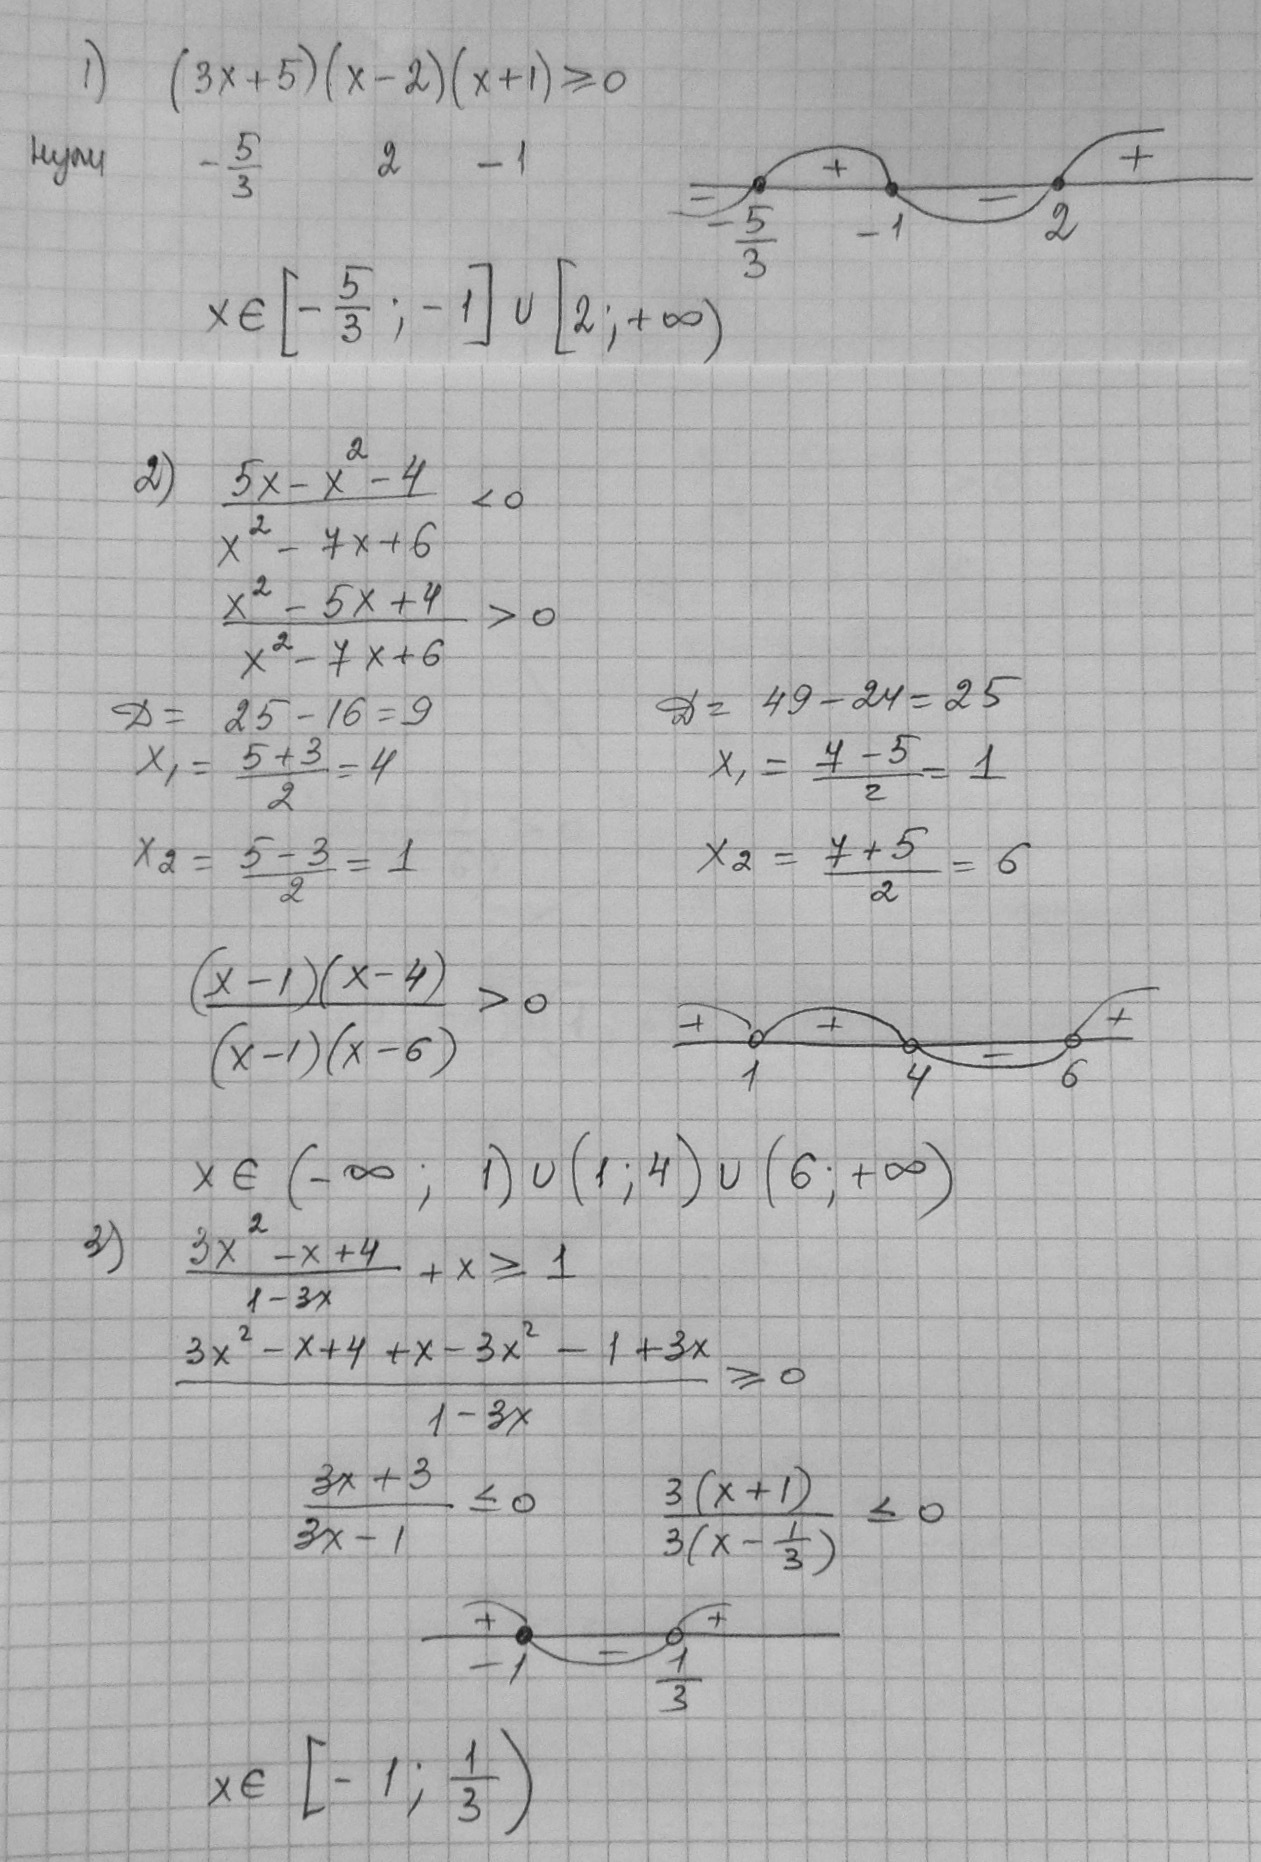 1) (3x+5)(x-2)(x+1)≥0
нули -5/3 2 -1
- + - +
-5/3 -1 2
x∈[-5/3; -1]∪[2; +∞)
2) (5x-x²-4)/(x²-7x+6) <0
(x²-5x+4)/(x²-7x+6) >0
D= 25-16=9 D= 49-24=25
x₁= (5+3)/2=4 x₁= (7-5)/2= 1
x₂= (5-3)/2=1 x₂= (7+5)/2=6
((x-1)(x-4))/((x-1)(x-6)) >0
+ + - +
1 4 6
x∈ (-∞; 1)∪(1;4)∪(6;+∞)
3) (3x²-x+4)/(1-3x) +x≥1
(3x²-x+4+x-3x²-1+3x)/(1-3x) ≥0
(3x+3)/(3x-1) ≤0 (3(x+1))/(3(x-1/3)) ≤0
+ - +
-1 1/3
x∈ [-1; 1/3)